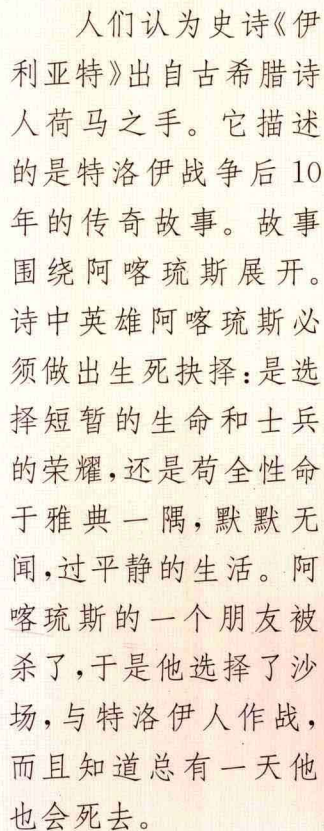 人们认为史诗《伊
利亚特》出自古希腊诗
人荷马之手。它描述
的是特洛伊战争后 10
年的传奇故事。故事
围绕阿喀琉斯展开。
诗中英雄阿喀琉斯必
须做出生死抉择:是选
择短暂的生命和士兵
的荣耀,还是苟全性命
于雅典一隅,默默无
闻,过平静的生活。阿
喀琉斯的一个朋友被
杀了,于是他选择了沙
场,与特洛伊人作战,
而且知道总有一天他
也会死去。